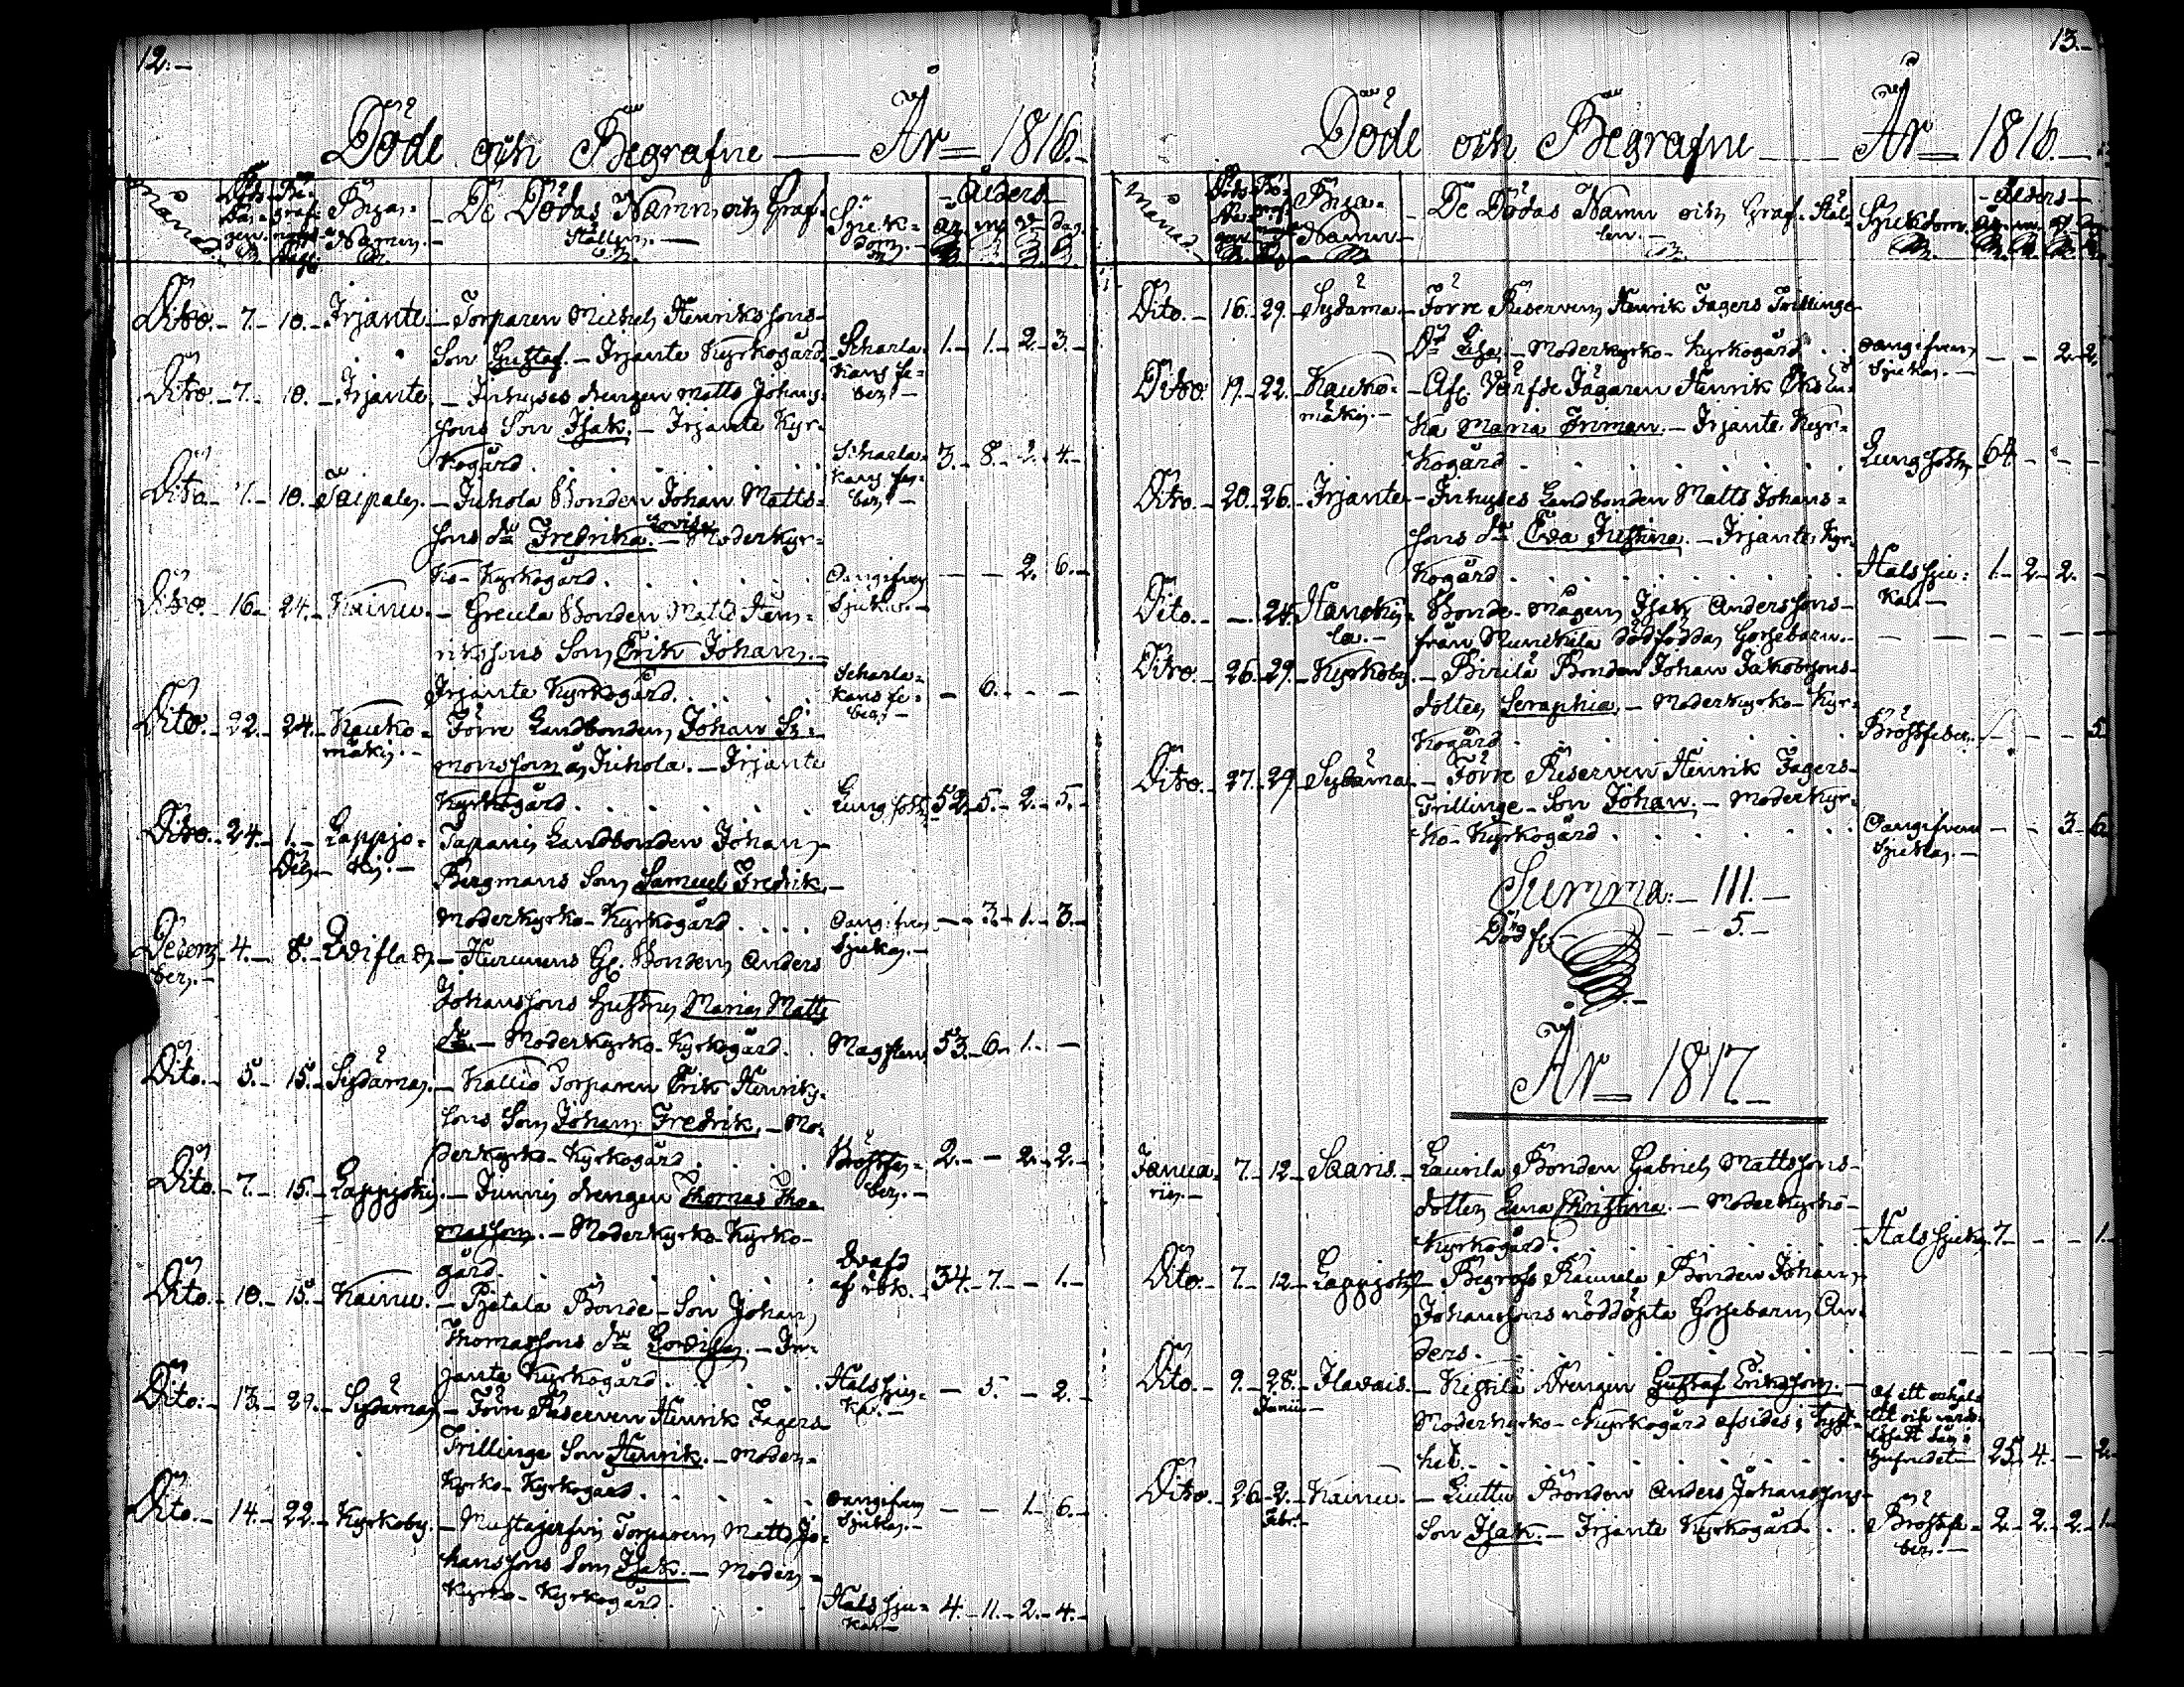 12.-
Döde och Begrafne — År 1816.-
Månad. Döds Dagen. Begrafnings Dag. Byarnas Namn. - De Dödas Namn och Graf-Ställen. — Sjukdom. - Ålders - år. m. v. dag.
Dito. - 7. - 10. - Irjante. - Torparen Michels Henrikssons
Son Gustaf. - Irjante Kyrkogård. Scharlakans feber. - 1. - 1. - 2. - 3. -
Dito. - 7. - 10. - Irjante. - Inhyses drengen Matts Johans-
sons Son Isak. - Irjante Kyr-
kogård. Scharlakans feber. - 3. - 8. - 2. - 4. -
Dito. - 7. - 10. - Taipale. - Juhola Bonden Johan Matts-
sons dr Fredrika Lovisa. - Moderkyr-
ko-Kyrkogård. Oangifven Sjukd. - — — 2. 6. -
Dito. - 16. - 24. - Kainu. - Greula Bonden Matts Hen-
rikssons Son Erik Johan. -
Irjante Kyrkogård. Scharlakans feber. - — 6. - — —
Dito. - 22. - 24. - Kaukomäki. - Förre Landbonden Johan Si-
monsson å Juhola. - Irjante
Kyrkogård. Lungsot. 52. - 5. - 2. - 5. -
Dito. - 24. - 1. Dec. - Lappjoki. - Tapani Landbonden Johan
Bergmans Son Samuel Fredrik. -
Moderkyrko-Kyrkogård. Oangifven Sjukd. - — 3. - 1. - 3. -
December. - 4. - 8. - - Hurmuns Gl. Bonden Anders
Johanssons Hustru Maria Matts
dr. - Moderkyrko-Kyrkogård. Magsten 53. - 6. - 1. - —
Dito. - 5. - 15. - Sydänmaa. - Kallio Torparen Erik Henriks-
sons Son Johan Fredrik. - Mo-
derkyrko-Kyrkogård. Bröstfeber. - 2. - — 2. - 2. -
Dito. - 7. - 15. - Lappjoki. - Junni drengen Thomas Tho-
masson. - Moderkyrko-Kyrko-
gård. Qvafd af rök. - 34. - 7. - — 1. -
Dito. - 10. - 15. - Kainu. - Pietala Bonde-Son Johan
Thomassons dr Lovisa. - Ir-
jante Kyrkogård. Halssjuka. - — 5. - — 2. -
Dito. - 13. - 29. - Sydänmaa. - Förre Reserven Henrik Fagers
Trillinge Son Henrik. - Moder-
kyrko-Kyrkogård. Oangifven Sjukd. - — — 1. - 6. -
Dito. - 14. - 22. - Kyrkoby. - Mustajerfvi Torparen Matts Jo-
hanssons Son Isak. - Moder-
kyrko-Kyrkogård. Halssjuka. - 4. - 11. - 2. - 4. -
13.-
Döde och Begrafne — År 1816. -
Månad. Döds Dagen. Begrafnings Dag. Byarnas Namn. - De Dödas Namn och Graf-Ställen. - Sjukdom. - Ålders -
Dito. - 16. - 29. - Sydänmaa - Förre Reserven Henrik Fagers Trillinge
Dr Lisa. - Moderkyrko-Kyrkogård. Oangifven Sjukd. - — — 2. - 2.
Dito. 19. - 22. - Kaukomäki. - Afsk. Värfde Jägaren Henrik Öks En-
ka Maria Friman. - Irjante Kyr-
kogård. Lungsot 64. - — —
Dito. - 20. - 26. - Irjante - Inhyses Landbonden Matts Johans-
sons dr Eva Justina. - Irjante Kyr-
kogård. Halssjuka. - 1. - 2. - 2. -
Dito. - — 24. - Bonde-Mågen Isak Anderssons
från Munckila dödfödda Gossebarn. - — — — —
Dito. - 26. - 29. - Kyrkoby. - Birilä Bonden Johan Jakobssons
dotter Seraphia. - Moderkyrko-Kyr-
kogård. Bröstfeber. - — — — 5
Dito. - 27. - 29. - Sydänmaa. - Förre Reserven Henrik Fagers
Trillinge-Son Johan. - Moderkyr-
ko-Kyrkogård. Oangifven Sjukd. - — — 3. - 6
Summa: - 111. -
Dödf. — — 5. -
År 1817. -
Januarii. - 7. - 12. - Saaris. - Laurila Bonden Gabriel Mattssons
dotter Lena Christina. - Moderkyrko-
Kyrkogård. Halssjuka. 7. - — — 1. -
Dito. - 7. - 12. - Lappjoki. - Raunela Bonden Johan
Johanssons nöddöpta Gossebarn An-
ders. — — — —
Dito. - 9. - 28. Junii - Ilavais. - Kistilä Drengen Gustaf Eriksson. -
Moderkyrko-Kyrkogård afsides i tyst-
het. 25. - 4. - — 2. -
Dito. - 26. - 2. Febr. - Kainu. - Liuttu Bonden Anders Johanssons
Son Isak. - Irjante Kyrkogård. Bröstfeber. - 2. - 2. - 2. - 1. -